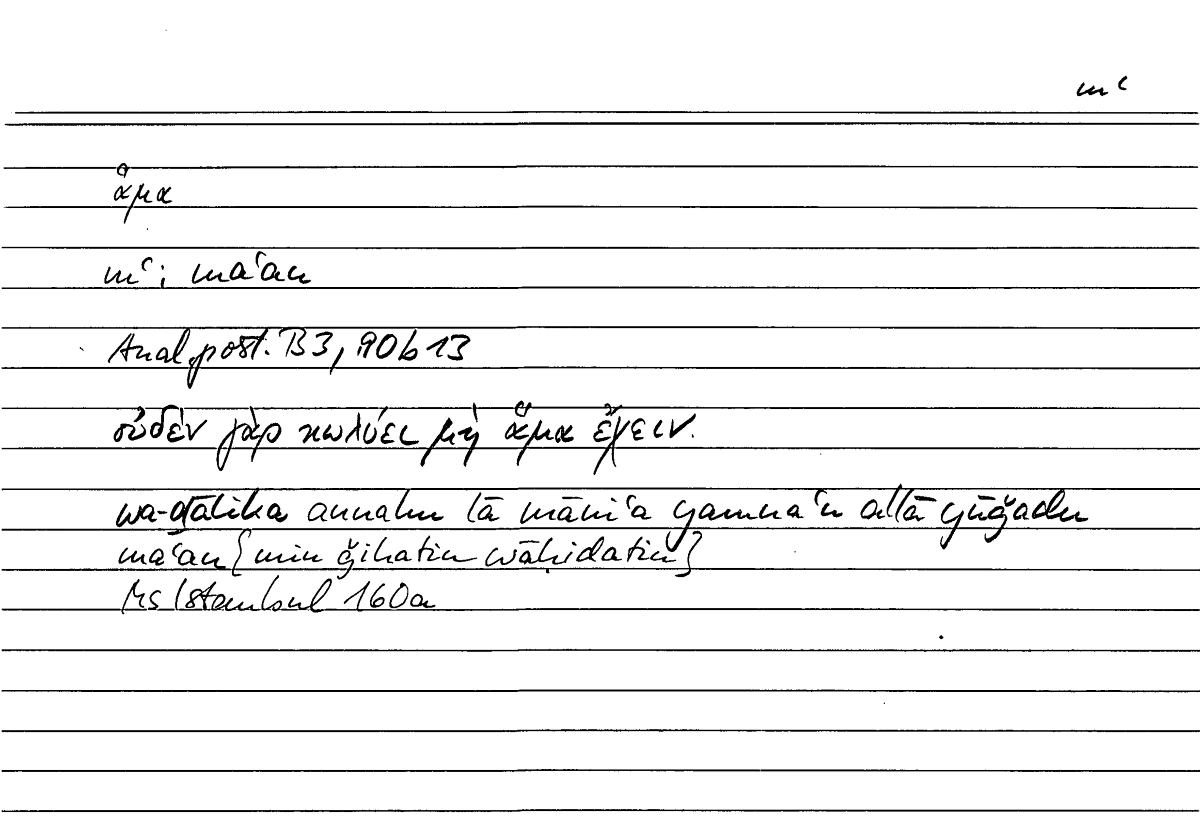 mʿ
ἅμα
mʿ; maʿan
Anal.post. B3, 90b13
οὐδὲν γὰρ κωλύει μὴ ἅμα ἔχειν.
wa-ḏālika annahu lā māniʿa yamnaʿu allā yūǧadu
maʿan [min ǧihatin wāḥidatin]
Ms Istanbul 160a